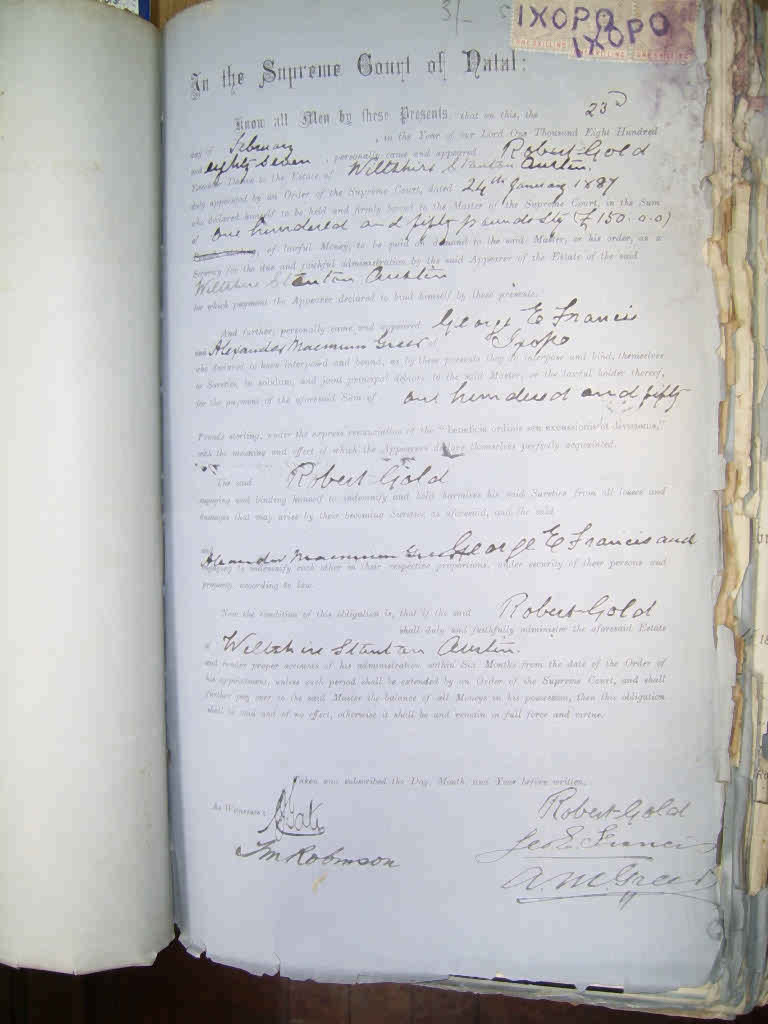 3/-
IXOPO
IXOPO
In the Supreme Court of Natal:
Know all Men by these Presents, that on this, the 23d
day of February, in the Year of our Lord One Thousand Eight Hundred
and eighty seven, personally came and appeared Robert Gold
Executor Dative to the Estate of Wiltshire Stanton Austin.
duly appointed by an Order of the Supreme Court, dated 24th January 1887
who declared himself to be held and firmly bound to the Master of the Supreme Court, in the Sum
of one hundered and fifty pounds Stg (£150.0.0)
, of lawful Money, to be paid on demand to the said Master, or his order, as a
Security for the due and faithful administration by the said Appearer of the Estate of the said
Wiltshire Stanton Austin
for which payment the Appearer declared to bind himself by these presents.
And further, personally came and appeared George E Francis
and Alexander Greer of Ixopo
who declared to have interposed and bound, as by these presents they do interpose and bind, themselves
as Sureties, in solidum, and joint principal debtors, to the said Master, or the lawful holder thereof,
for the payment of the aforesaid Sum of one hundered and fifty
Pounds sterling, under the express renunciation of the "beneficia ordinis seu excussionis et divisionis,"
with the meaning and effect of which the Appearers declare themselves perfectly acquainted.
The said Robert Gold
engaging and binding himself to indemnify and hold harmless his said Sureties from all losses and
damages that may arise by their becoming Sureties as aforesaid, and the said
George E Francis and
and Alexander Greer
engaging to indemnify each other in their respective proportions, under security of their persons and
property according to law.
Now the condition of this obligation is, that if the said Robert Gold
shall duly and faithfully administer the aforesaid Estate
of Wiltshire Stanton Austin.
and render proper accounts of his administration within Six Months from the date of the Order of
his appointment, unless such period shall be extended by an Order of the Supreme Court, and shall
further pay over to the said Master the balance of all Moneys in his possession, then this obligation
shall be void and of no effect, otherwise it shall be and remain in full force and virtue.
Taken was subscribed the Day, Month and Year before written.
As Witnesses:
Robert Gold
Geo E. Francis
Robinson
A. M. Greer